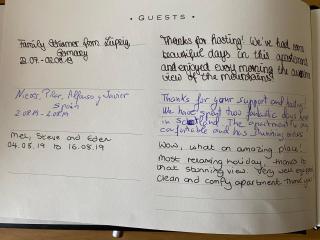 • GUESTS •
Family from Leipzig,
Germany
Thanks for hosting! We've had some
beautiful days in this apartment
and enjoyed every morning the
view of the mountains!
Nicos, Pilar, Alfonso y Javier
Spain
Thanks for your support and
We have spent two fantastic days here
in Scotland. The apartment is
comfortable and has stunning
Mel, Steve and
04.08.19 to 16.08.19
Wow, what an amazing place!
Most relaxing holiday, thanks to
that stunning view. Very well equipped
clean and comfy apartment. Thank you